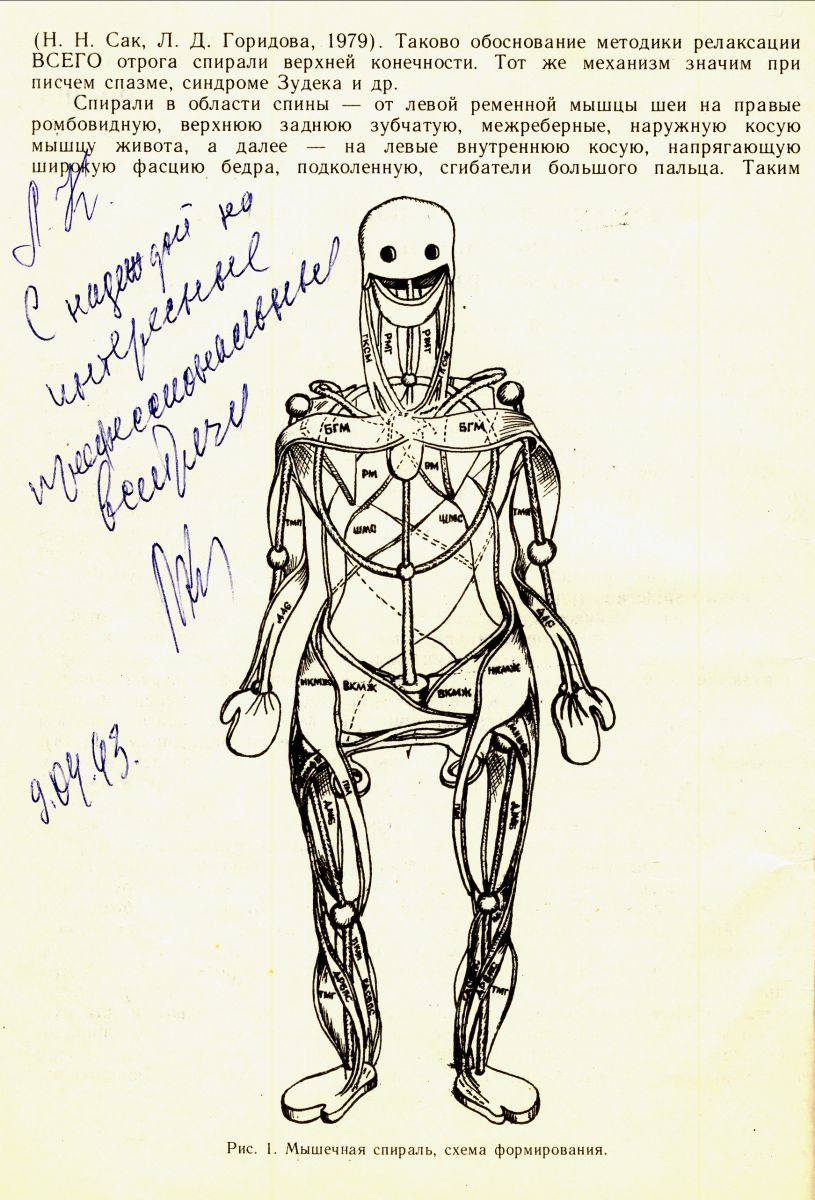 (Н. Н. Сак, Л. Д. Горидова, 1979). Таково обоснование методики релаксации
ВСЕГО отрога спирали верхней конечности. Тот же механизм значим при
писчем спазме, синдроме Зудека и др.
Спирали в области спины — от левой ременной мышцы шеи на правые
ромбовидную, верхнюю заднюю зубчатую, межреберные, наружную косую
мышцу живота, а далее — на левые внутреннюю косую, напрягающую
широкую фасцию бедра, подколенную, сгибатели большого пальца. Таким
С надеждой на
интересные
профессиональные
встречи
9.04.93.
ГКСМ РМГ РМГ ГКСМ
БГМ БГМ
РМ РМ
ШМС ШМС
ТМП ТМП
НКМЖ ВКМЖ ВКМЖ НКМЖ
ПМ ПМ
ДМБ ДМБ
ТМГ ТМГ
Рис. 1. Мышечная спираль, схема формирования.